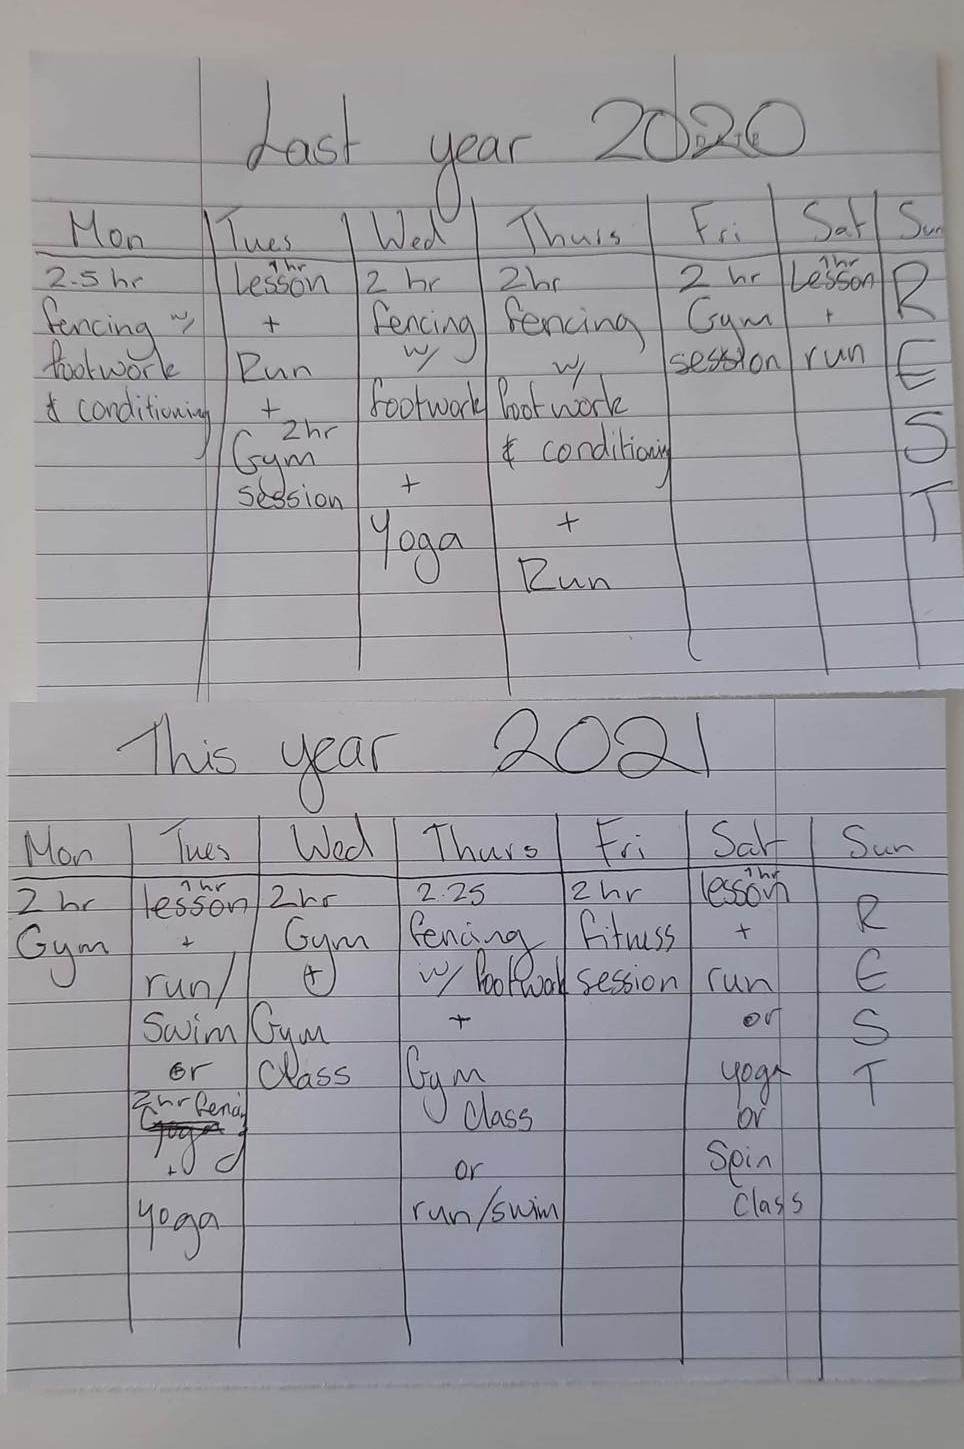 Last year 2020
Mon Tues Wed Thurs Fri Sat Sun
2.5 hr
fencing w/
footwork
& conditioning
1hr
Lesson
+
Run
+
2hr
Gym
session
2 hr
fencing
w/
footwork
+
Yoga
2hr
fencing
w/
footwork
& conditioning
+
Run
2 hr
Gym
session
1hr
Lesson
+
run
R
E
S
T
This year 2021
Mon Tues Wed Thurs Fri Sat Sun
2 hr
Gym
1hr
lesson
+
run/
swim
or
2hr fencing
+
yoga
2hr
Gym
+
Gym
Class
2.25
fencing
w/ footwork
+
Gym
Class
or
run/swim
2 hr
fitness
session
1hr
lesson
+
run
or
yoga
or
Spin
Class
R
E
S
T